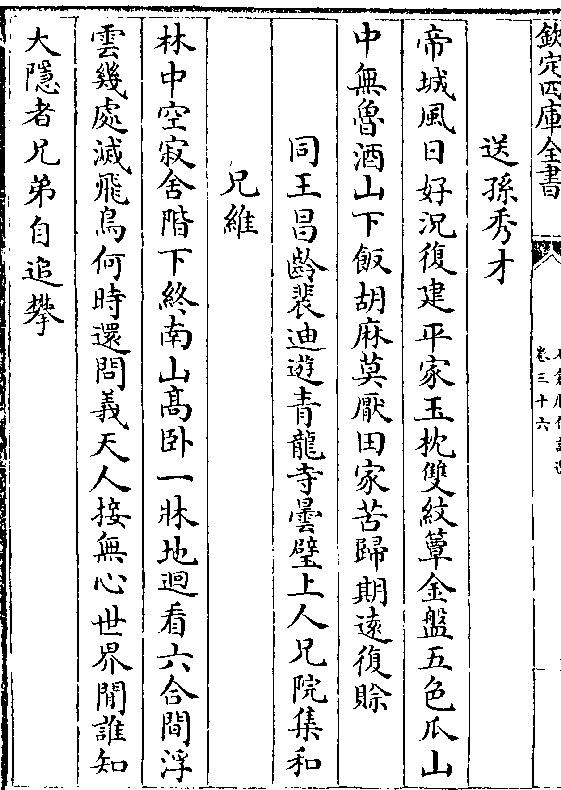 欽定四庫全書
卷三十六
送孫秀才
帝城風日好況復建平家玉枕雙紋簟金盤五色瓜山
中無魯酒山下飯胡麻莫厭田家苦歸期遠復賒
同王昌齡裴迪遊青龍寺曇壁上人兄院集和
兄維
林中空寂舍階下終南山高卧一牀地迴看六合間浮
雲幾處滅飛鳥何時還問義天人接無心世界閒誰知
大隱者兄弟自追攀